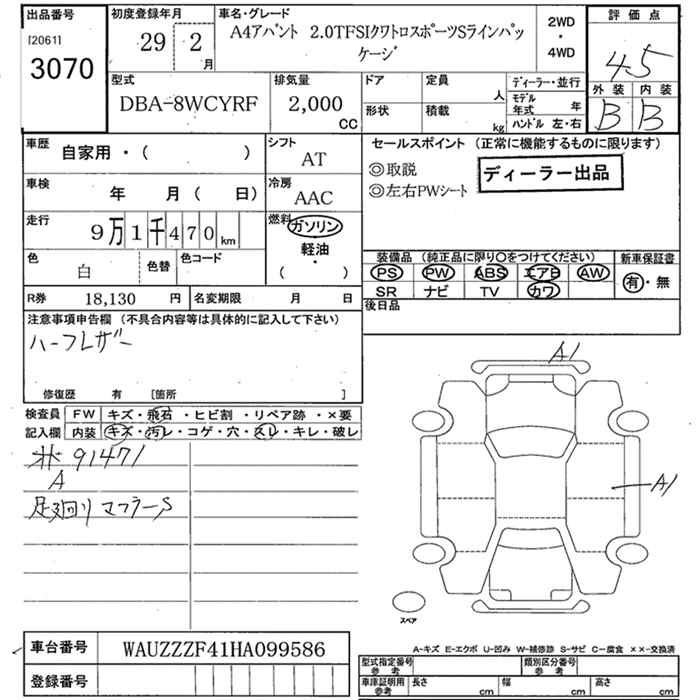 出品番号
[2061]
3070
初度登録年月
29 2 月
車名・グレード
A4アバント 2.0TFSIクワトロスポーツSラインパッ
ケージ
2WD
・
4WD
評 価 点
4.5
外 装 内 装
B B
型式
DBA-8WCYRF
排気量
2,000
CC
ドア
定員
人
形状
積載
kg
ディーラー・並行
モデル
年式 年
ハンドル 左・右
車歴
自家用・( )
シフト
AT
車検
年 月( 日)
冷房
AAC
走行
9万1千470km
燃料
ガソリン
軽油・
( )
色
白
色替
色コード
R券 18,130 円
名変期限 月 日
セールスポイント (正常に機能するものに限ります)
◎取説
◎左右PWシート
ディーラー出品
装備品 (純正品に限り○をつけてください)
PS PW ABS エアB AW
SR ナビ TV カワ
新車保証書
有・無
後日品
注意事項申告欄 (不具合内容等は具体的に記入して下さい)
ハーフレザー
修復歴 有 [箇所 ]
検査員
記入欄
FW キズ・飛石・ヒビ割・リペア跡・×要
内装 キズ・汚レ・コゲ・穴・スレ・キレ・破レ
91471
A
足廻り マフラーS
A1
A1
スペア
A-キズ E-エクボ U-凹み W-補修跡 S-サビ C-腐食 ××-交換済
車台番号 WAUZZZF41HA099586
登録番号
型式指定番号
参 考
類別区分番号
参 考
車庫証明用
参考
長さ cm 幅 cm 高さ cm